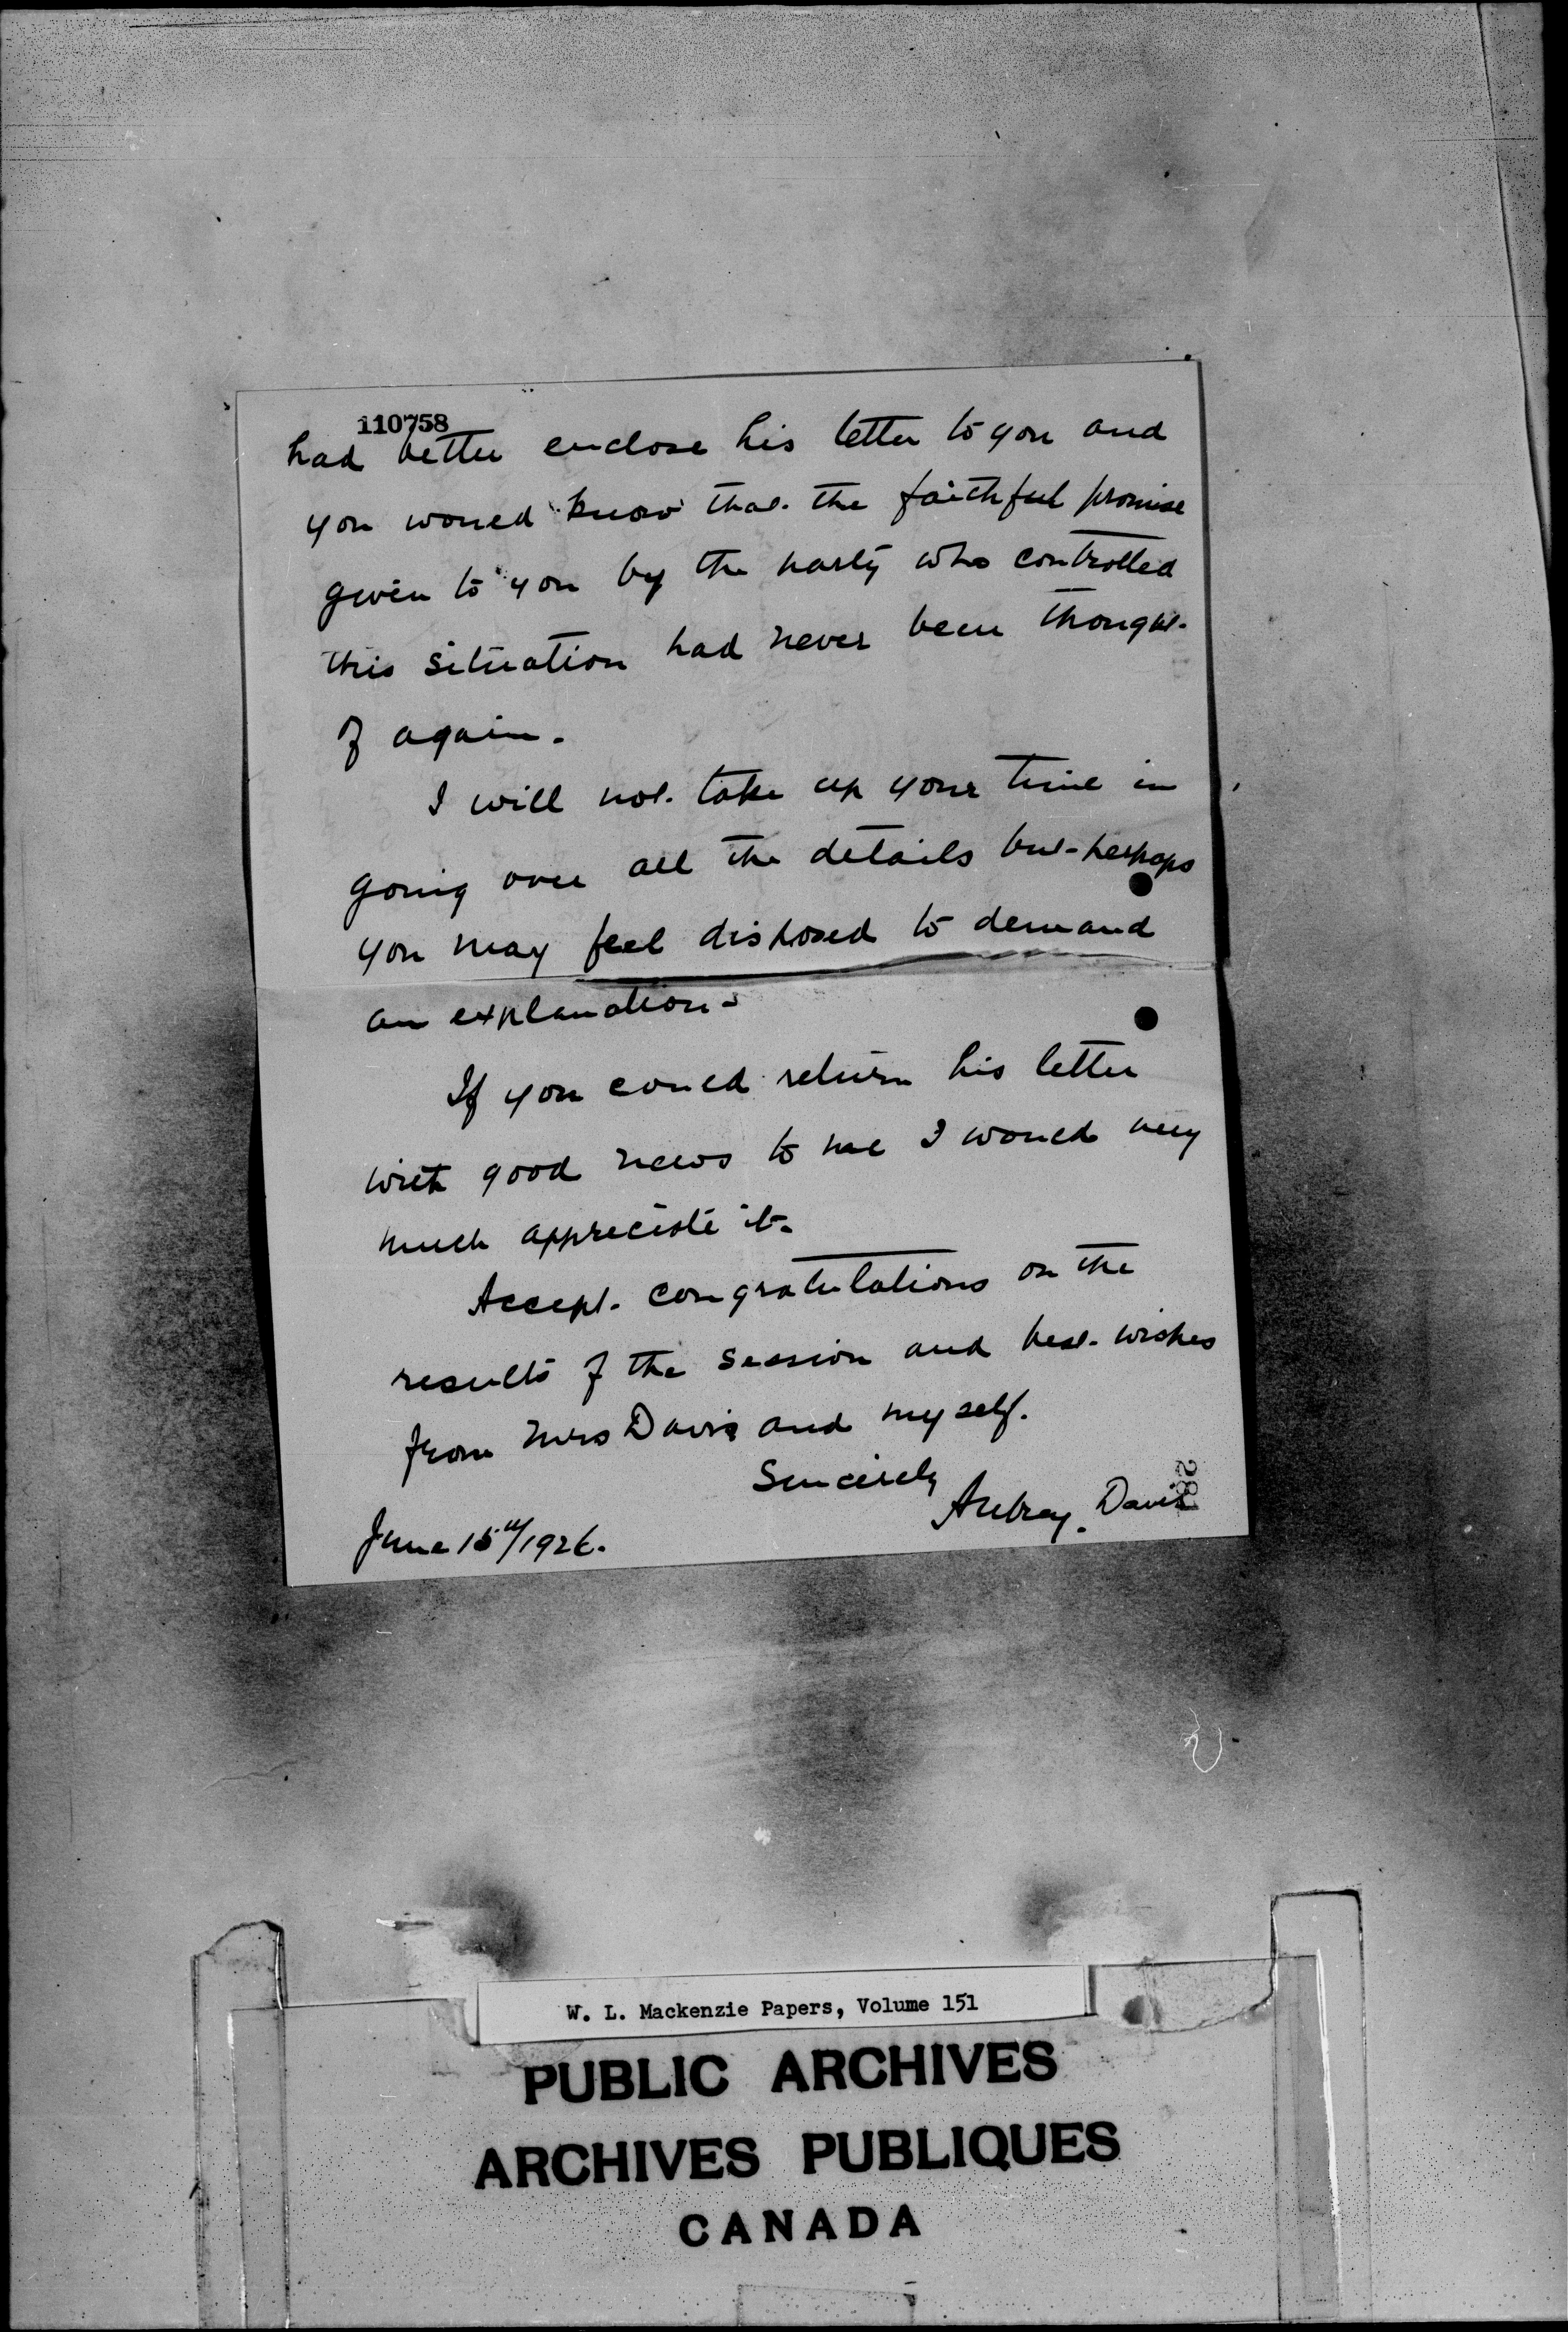 110758
had better enclose his letter to you and
you would know that the faithful promise
given to you by the party who controlled
this situation had never been thought
of again.
I will not take up your time in
going over all the details but perhaps
you may feel disposed to demand
an explanation.
If you could return his letter
with good news to me I would very
much appreciate it.
Accept congratulations on the
results of the session and best wishes
from Mrs Davis and myself.
Sincerely
Aubrey Davis
281
June 15th/1926.
W. L. Mackenzie Papers, Volume 151
PUBLIC ARCHIVES
ARCHIVES PUBLIQUES
CANADA